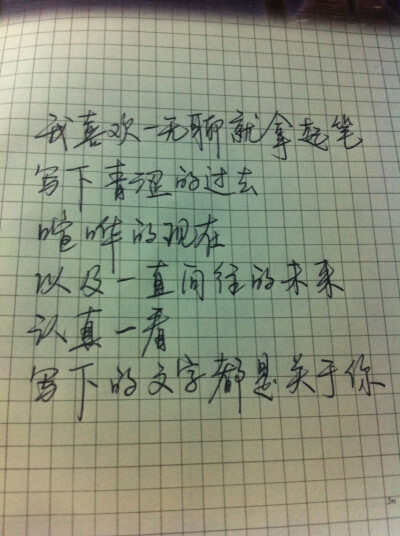 我喜欢一无聊就拿起笔
写下青涩的过去
喧哗的现在
以及一直向往的未来
认真一看
写下的文字都是关于你